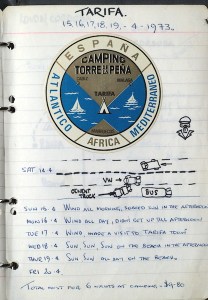 TARIFA.
15,16,17,18,19,-4-1973.
ESPAÑA
CAMPING
TORRE de la PEÑA
CADIZ
TARIFA
ATLANTICO
MEDITERRANEO
AFRICA
SAT 14-4
VW
CEMENT TRUCK
BUS
SUN 15-4 WIND ALL MORNING, SUN AFTERNOON
MON 16-4 WIND ALL DAY, DIDN'T GET UP TILL AFTERNOON
TUE 17-4 WIND MADE A VISIT TO TARIFA TOWN
WED 18-4 SUN, SUN, SUN ON THE BEACH IN THE AFTERNOON
THUR 19-4 SUN ALL DAY ON THE BEACH.
FRI 20-4
TOTAL COST FOR 6 NIGHTS AT CAMPING. $4-80